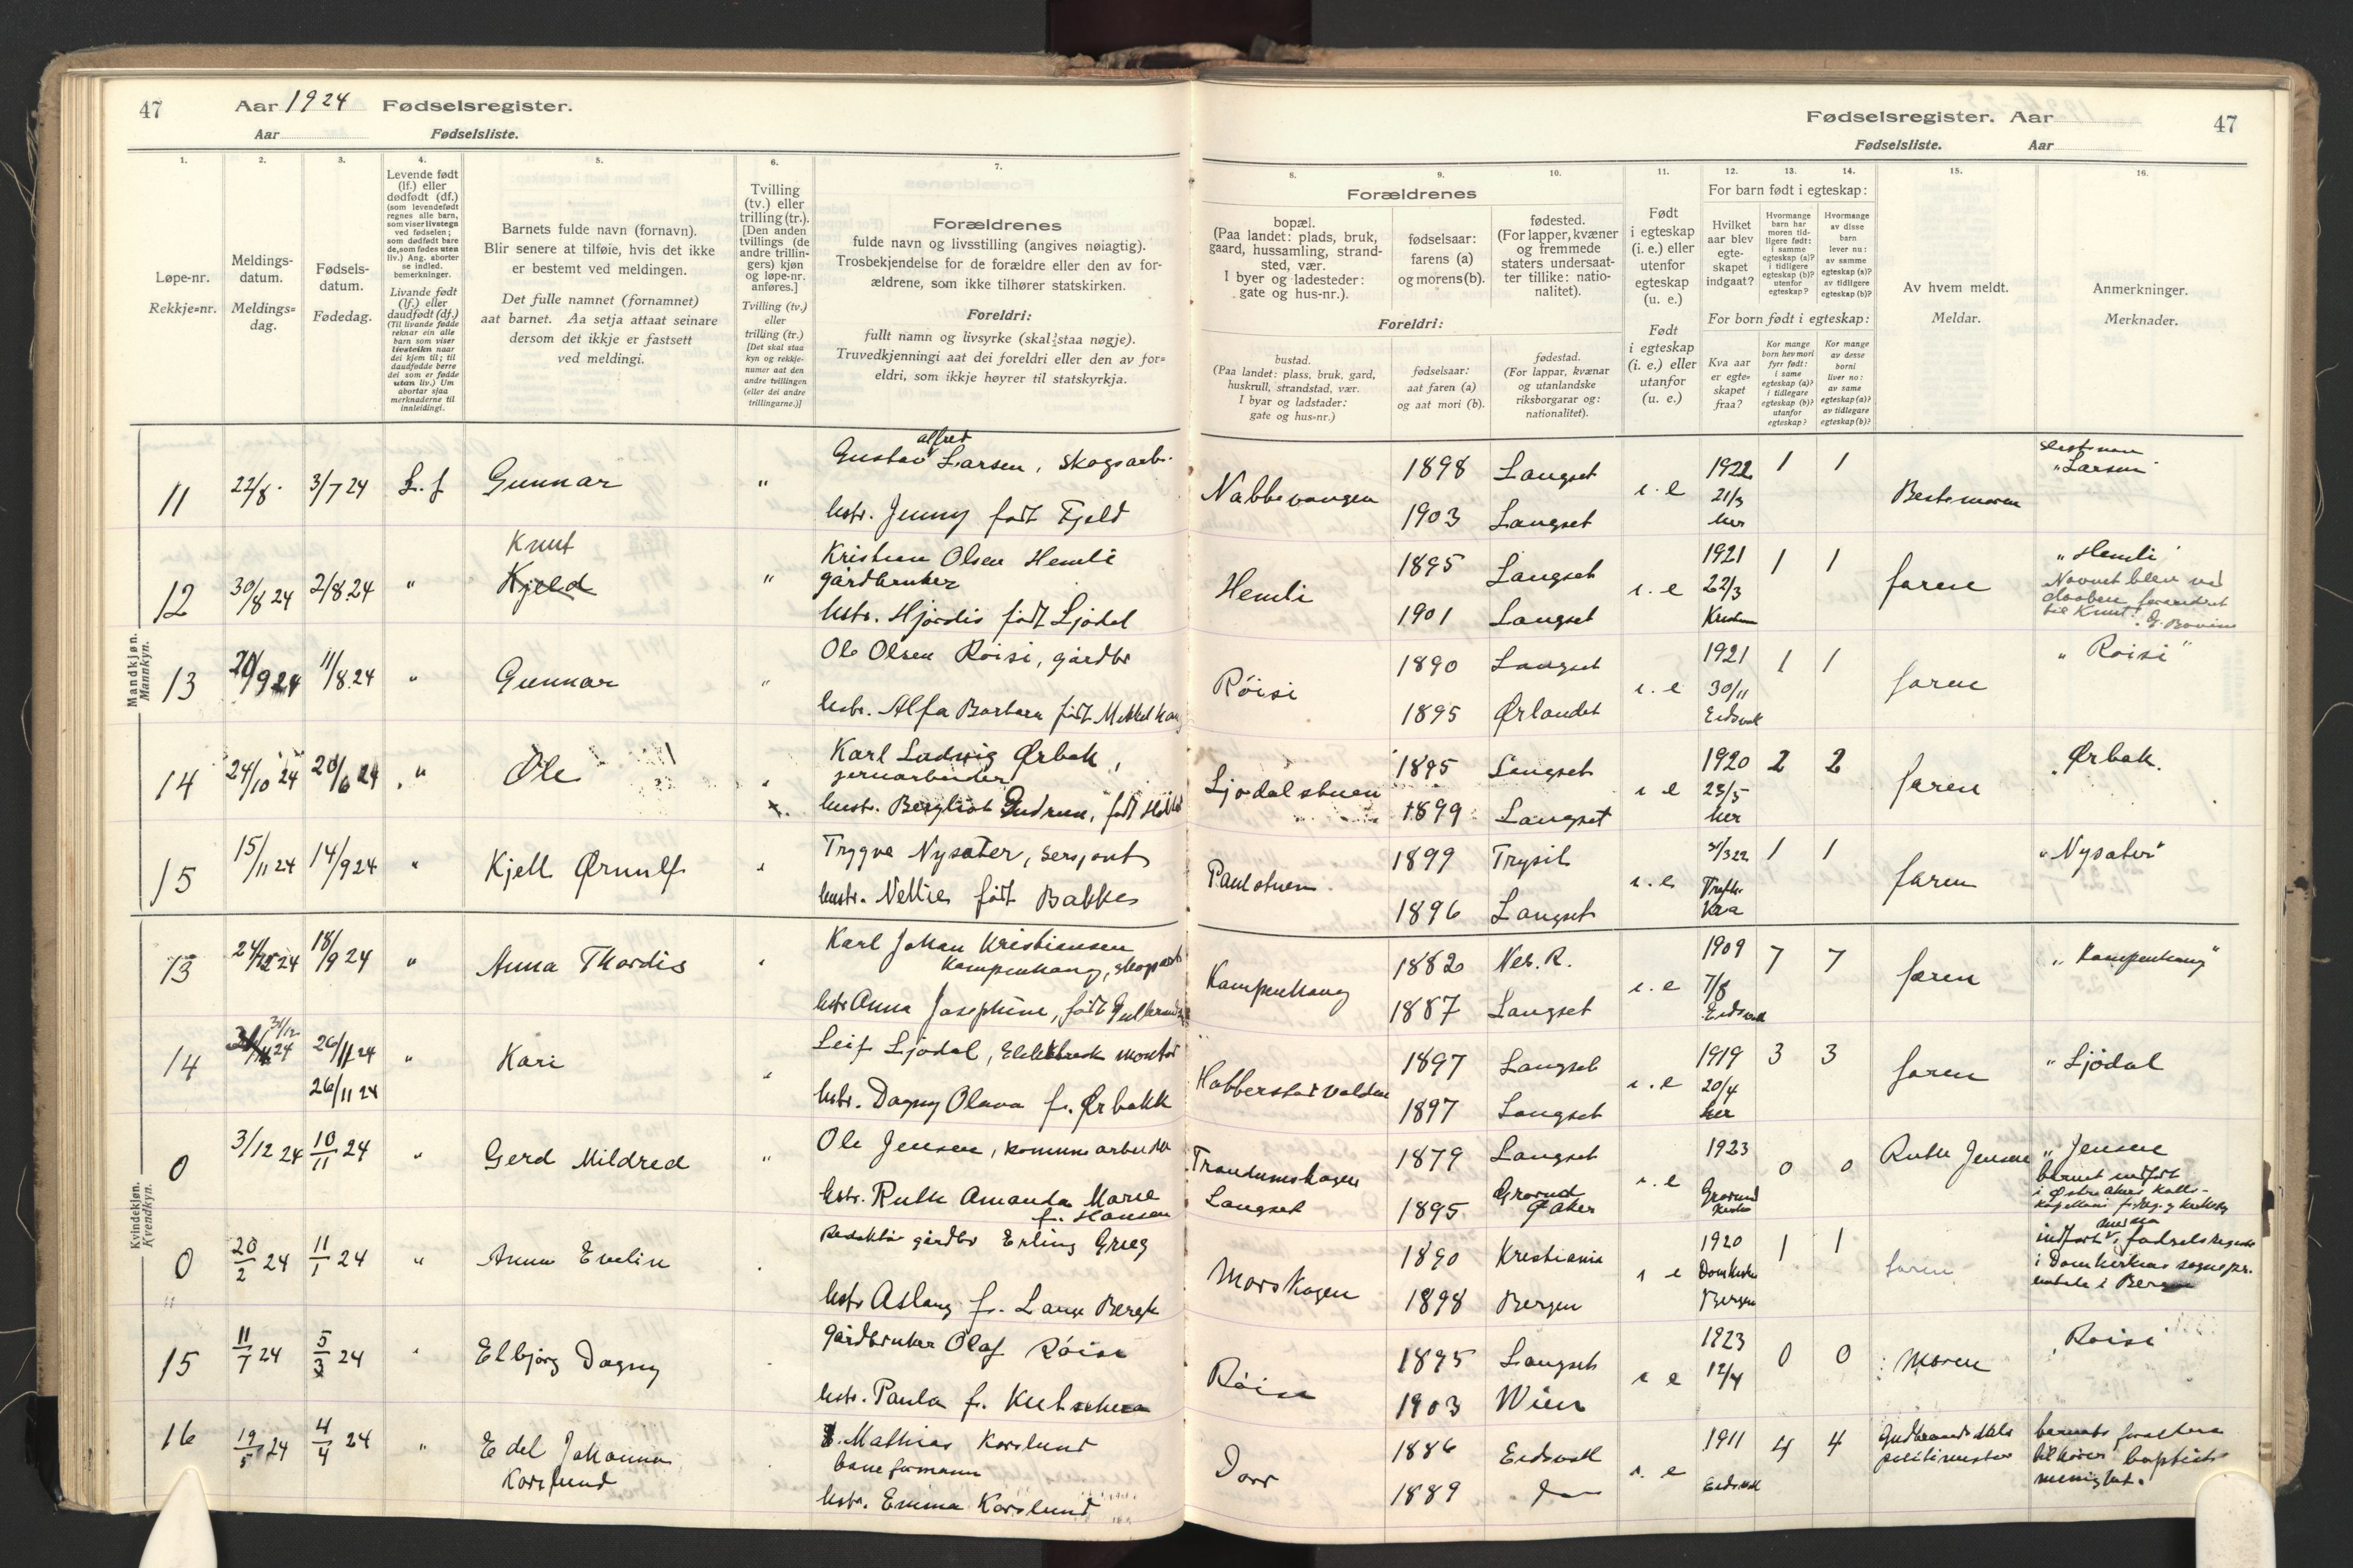 47 Aar 1924 Fødselsregister.
Aar Fødselsliste.
1. 2. 3. 4. 5. 6. 7.
Løpe-nr.
Rekkje=nr.
Meldings-
datum.
Meldings=
dag.
Fødsels-
datum.
Fødedag.
Levende født
(lf.) eller
dødfødt (df.)
(som levendefødt
regnes alle barn,
som viser livstegn
ved fødselen;
som dødfødt bare
de, som fødes uten
liv.) Ang. aborter
se indled.
bemerkninger.
Livande født
(lf.) eller
daudfødt (df.)
(Til livande fødde
reknar ein alle
barn som viser
livsteikn naar
dei kjem til; til
daudfødde berre
dei som er fødde
utan liv.) Um
abortar sjaa
merknaderne til
innleidingi.
Barnets fulde navn (fornavn).
Blir senere at tilføie, hvis det ikke
er bestemt ved meldingen.
Det fulle namnet (fornamnet)
aat barnet. Aa setja attaat seinare
dersom det ikkje er fastsett
ved meldingi.
Tvilling
(tv.) eller
trilling (tr.).
[Den anden
tvillings (de
andre trillin-
gers) kjøn
og løpe-nr.
anføres.]
Tvilling (tv.)
eller
trilling (tr.)
[Det skal staa
kyn og rekkje-
numer aat den
andre tvillingen
(eller dei andre
trillingarne.)]
Forældrenes
fulde navn og livsstilling (angives nøiagtig).
Trosbekjendelse for de forældre eller den av for-
ældrene, som ikke tilhører statskirken.
Foreldri:
fullt namn og livsyrke (skal staa nøgje).
Truvedkjenningi aat dei foreldri eller den av for=
eldri, som ikkje høyrer til statskyrkja.
Mandkjøn.
Mannkyn.
11 22/8 3/7 24 L. f Gunnar "
Gustav alfred Larsen, skogsarb.
hstr. Jenny født Fjeld
12 30/8 24 2/8 24 " Knut
Kjeld "
Kristian Olsen Hemli
gårdbruker
hstr. Hjørdis født Ljødal
13 20/9 24 11/8 24 " Gunnar "
Ole Olsen Röisi, gårdbr
hstr. Alfa Barbara født
14 24/10 24 20/6 24 " Ole
Karl Ludvig Ørbak,
jernarbeider
hustr. Bergliot Gudrun, født
15 15/11 24 14/9 24 " Kjell Ørnulf
Trygve Nysæter, sersjant
hustr. Nellie født Bakke
Kvindekjøn.
Kvendkyn.
13 24/12 24 18/9 24 " Anna Thordis
Karl Johan Kristiansen
Kampenhaug, skogsarb
hstr Anna Josephine, født
14 31/12 24 26/11 24 " Kari
26/11 24
Leif Ljødal, Elektrisk montør
hstr. Dagny Olava f. Ørbakk
0 3/12 24 10/11 24 " Gerd Mildred "
Ole Jensen, kommunearbeider
hstr. Ruth Amanda Marie
f. Hansen
0 20/2 24 11/1 24 " Anna Evelin
Redaktör gårdbr Erling Grieg
hstr Aslaug f.
15 11/7 24 5/3 24 Elbjørg Dagny
Gårdbruker Olaf Röisi
hstr. Paula f. Kutschera
16 19/5 24 4/4 24 " Edel Johanna
Korslund
Mathias Korslund
baneformann
hstr. Emma Korslund
Fødselsregister. Aar 47
Fødselsliste. Aar
8. 9. 10. 11. 12. 13. 14. 15. 16.
Forældrenes
bopæl.
(Paa landet: plads, bruk,
gaard, hussamling, strand-
sted, vær.
I byer og ladesteder:
gate og hus-nr.).
fødselsaar:
farens (a)
og morens (b).
fødested.
(For lapper, kvæner
og fremmede
staters undersaat-
ter tillike: natio-
nalitet).
Foreldri:
bustad.
(Paa landet: plass, bruk, gard,
huskrull, strandstad, vær.
I byar og ladstader:
gate og hus=nr.)
fødselsaar:
aat faren (a)
og aat mori (b).
fødestad.
(For lappar, kvænar
og utanlandske
riksborgarar og:
nationalitet).
Født
i egteskap
(i. e.) eller
utenfor
egteskap
(u. e.)
Født
i egteskap
(i. e.) eller
utanfor
egteskap
(u. e.)
For barn født i egteskap:
Hvilket
aar blev
egte-
skapet
indgaat?
Hvormange
barn har
moren tid-
ligere født:
i samme
egteskap (a)?
i tidligere
egteskap (b)?
utenfor
egteskap?
Hvormange
av disse
barn
lever nu:
av samme
egteskap (a)?
av tidligere
egteskap (b)?
For born født i egteskap:
Kva aar
er egte-
skapet
fraa?
Kor mange
born hev mori
fyrr født:
i same
egteskap (a)?
i tidlegare
egteskap (b)?
utanfor
egteskap?
Kor mange
av desse
borni
liver no:
av same
egteskap (a)?
av tidlegare
egteskap (b)?
Av hvem meldt.
Meldar.
Anmerkninger.
Merknader.
Nabbevangen 1898 Langset i. e 1922 1 1 Bestemoren "Larsen"
1903 Langset 21/3
her
Hemli 1895 Langset i. e 1921 1 1 faren "Hemli"
1901 Langset 22/3
Navnet blev ved
daaben forandret
til Knut.
Röisi 1890 Langset i. e 1921 1 1 faren "Röisi"
1895 Ørlandet 30/11
Eidsvoll
Ljødalstuen 1895 Langset i e 1920 2 2 faren Ørbak.
1899 Langset 23/5
her
Paulstuen 1899 Trysil i. e 1 1 faren "Nysæter"
1896 Langset
Kampenhaug 1882 Nes. R. i. e 1909 7 7 faren "Kampenhaug"
1887 Langset 7/8
Eidsvoll
1897 Langset i. e 1919 3 3 faren "Ljödal
1897 Langset 20/4
her
Trandumshagen
Langset 1879 Langset i. e 1923 0 0 Ruth Jensen "Jensen
1895 Grorud
Ø Aker Grorud
barnet indført
i Østre Akers
Morskogen 1890 Kristiania i e 1920 1 1 faren
1898 Bergen Domkirken
Bergen
indført i fødselsregister
i Domkirkens sognepr.
embede i Bergen
Röise 1895 Langset i e 1923 0 0 Moren Roisi
1903 Wien 12/4
Dorr 1886 Eidsvoll i. e 1911 4 4
1889 Eidsvoll
barnets foreldre
tilhører baptist
menighet.